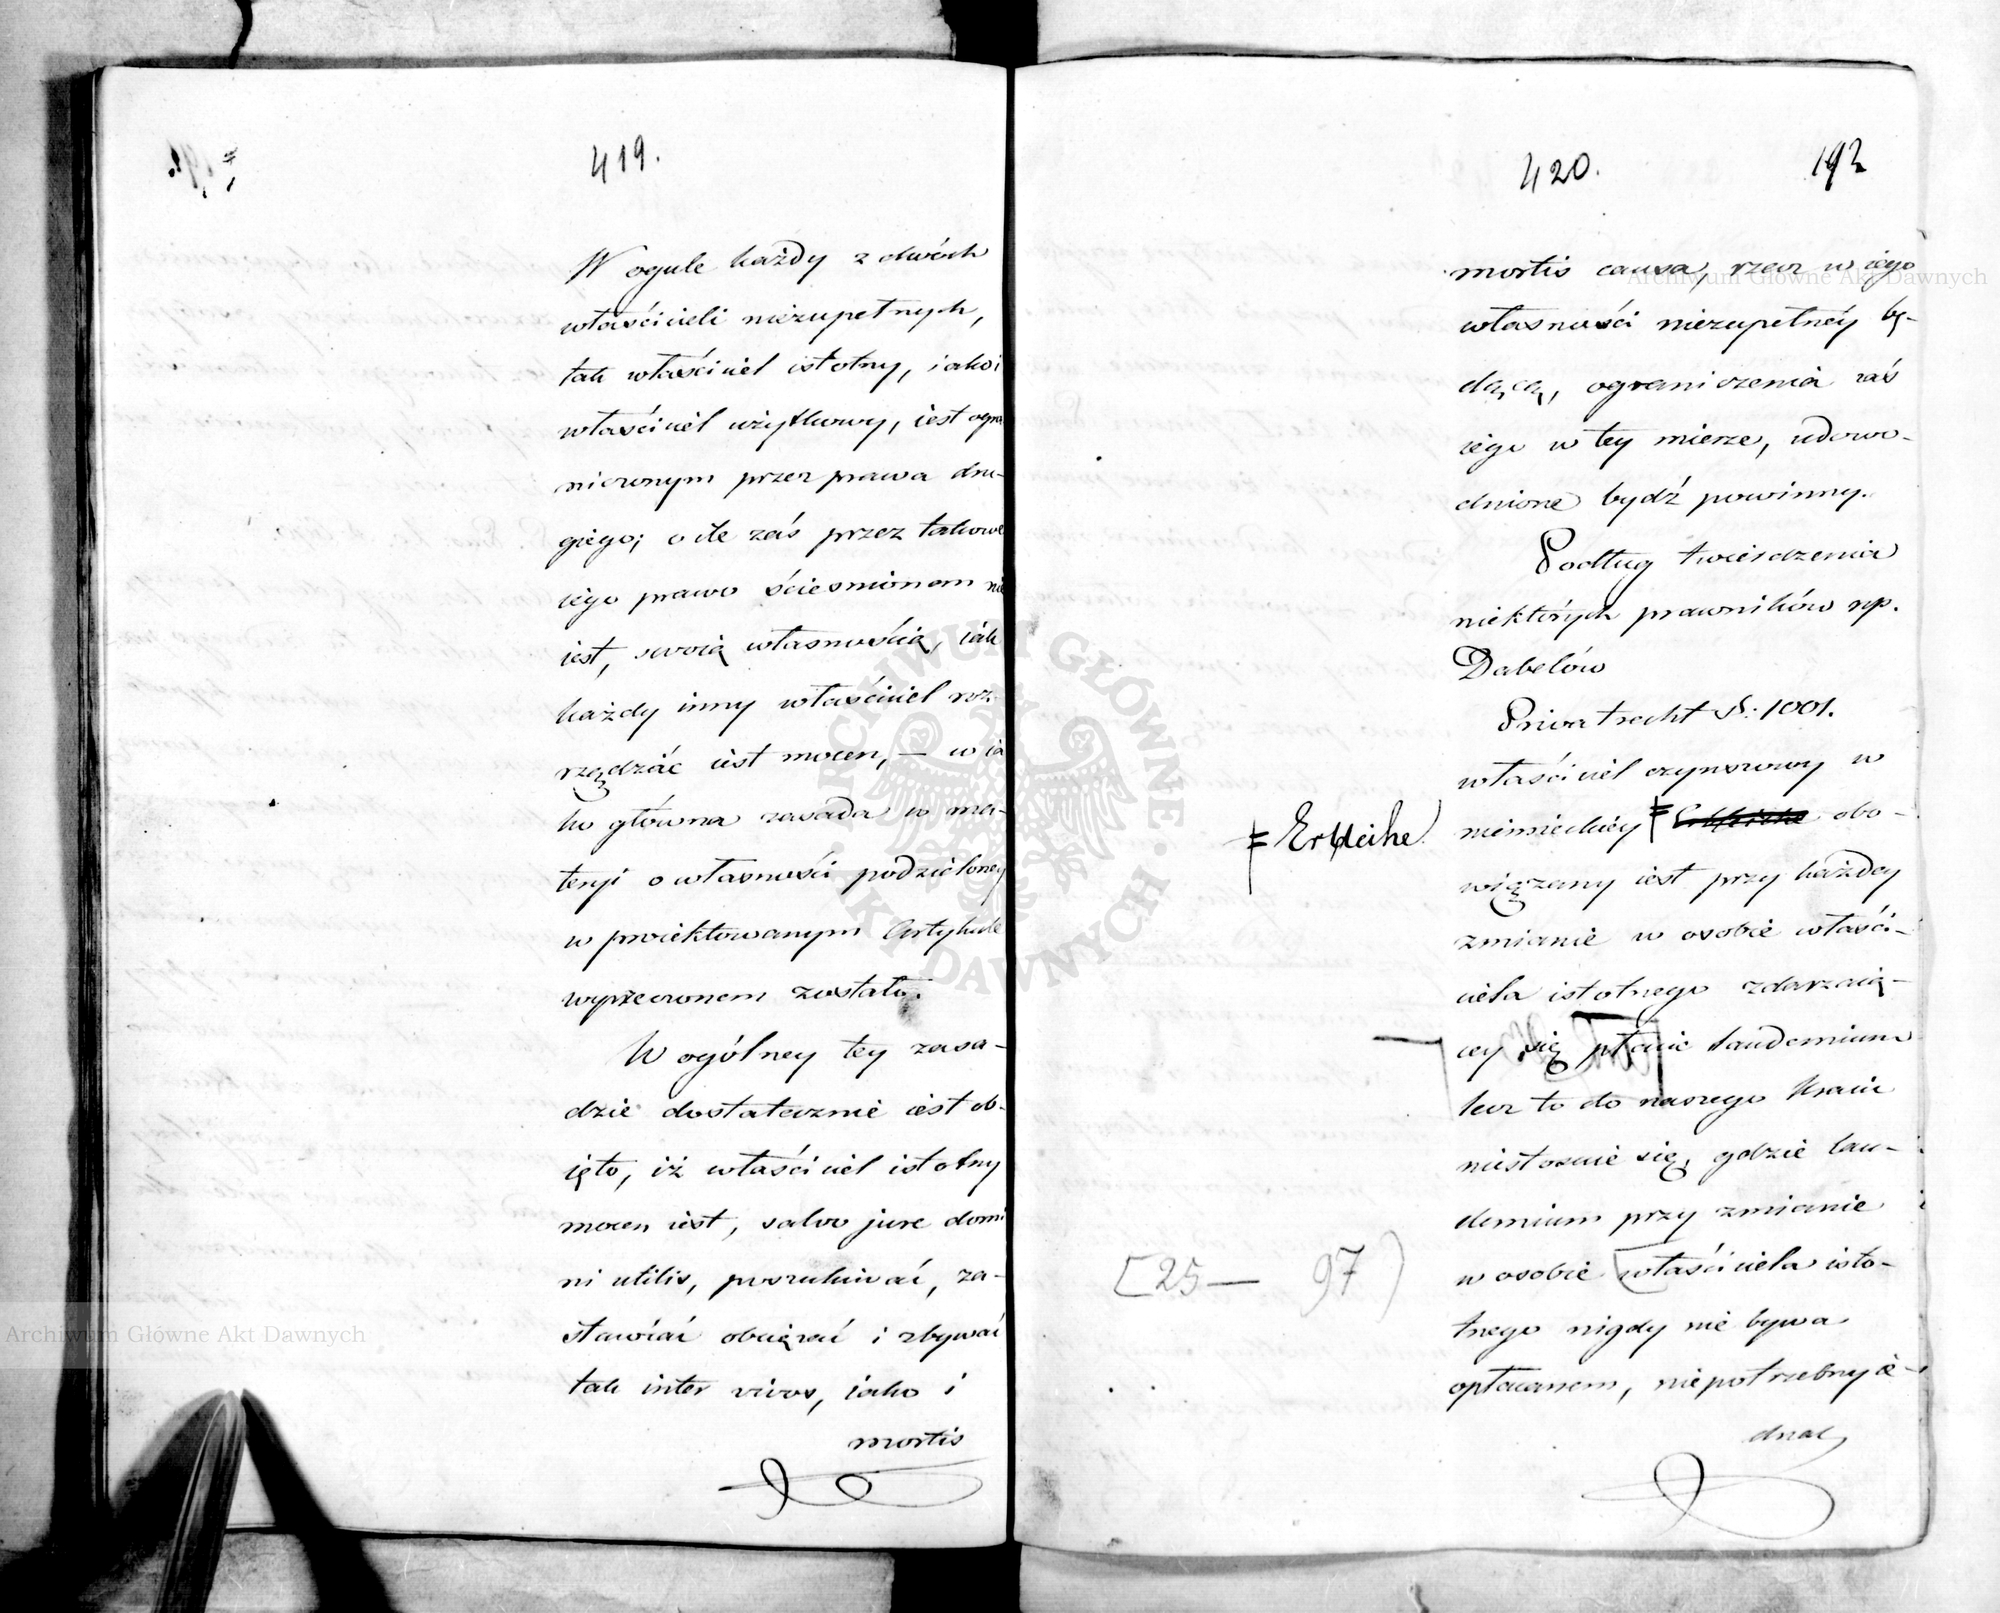 419.
W ogule każdy z dwóch
właścicieli niezupełnych,
tak właściciel istotny, iako i
właściciel użytkowy, iest ogra
niczonym przez prawa dru-
giego; o ile zaś przez takowe
iego prawo ścieśnionem nie
iest, swoią własnością, iak
każdy inny właściciel roz-
rządzać iest mocen, — w ia
ko główna zasada w ma-
teryi o własności podzieloney
w proiektowanym Artykule
wyrzeczonem zostało.
W ogólney tey zasa-
dzie dostatecznie iest ob-
ięto, iż właściciel istotny
mocen iest, salvo jure domi
ni utilis, poszukiwać, za-
stawiać obciążać i zbywać
tak inter vivos, iako i
mortis
420.
192
mortis causa, rzecz w iego
własności niezupełnéy bę-
dącą, ograniczenia zaś
iego w tey mierze, udowo-
dnione bydź powinny.
Podług twierdzenia
niektórych prawników np.
Dabelów
Privatrecht §: 1001.
właściciel czynszowy w
niemieckiéy ǂ Erbleihe obo-
ǂ Erbleihe
wiązany iest przy każdey
zmianie w osobie właści-
ciela istotnego zdarzaią-
cey się płacić laudemium
lecz to do naszego Kraiu
niestosuie się, gdzie lau-
demium przy zmianie
w osobie właściciela isto-
[25 — 97)
tnego nigdy nie bywa
opłacanem, niepotrzebny ie-
dnak
Archiwum Główne Akt Dawnych
Archiwum Główne Akt Dawnych
ARCHIWUM GŁÓWNE AKT DAWNYCH